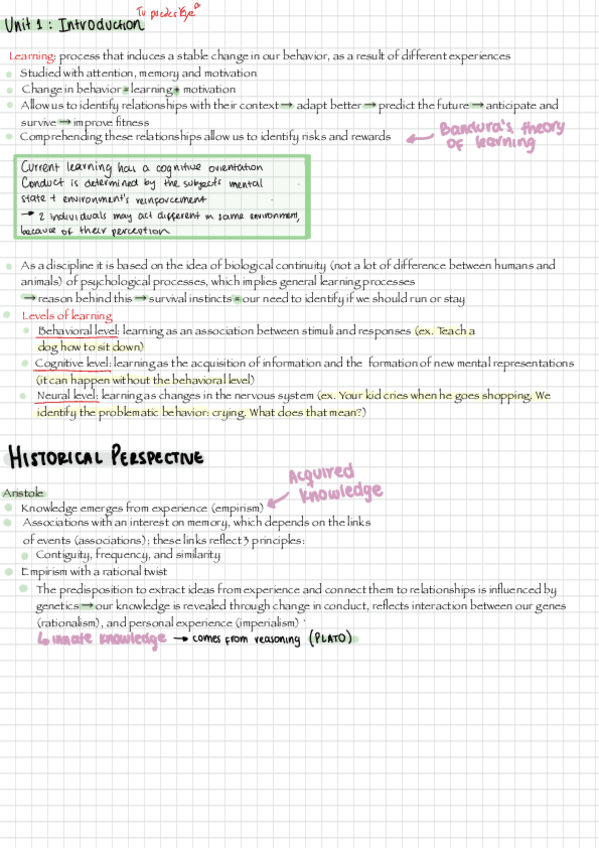 Tu puedes
Unit 1: Introduction
Learning: process that induces a stable change in our behavior, as a result of different experiences
Studied with attention, memory and motivation
Change in behavior = learning + motivation
Allow us to identify relationships with their context → adapt better → predict the future → anticipate and
survive → improve fitness
Comprehending these relationships allow us to identify risks and rewards
Bandura's theory
of learning
Current learning has a cognitive orientation
Conduct is determined by the subject's mental
state + environment's reinforcement
→ 2 individuals may act different in same environment,
because of their perception
As a discipline it is based on the idea of biological continuity (not a lot of difference between humans and
animals) of psychological processes, which implies general learning processes
→ reason behind this → survival instincts = our need to identify if we should run or stay
Levels of learning
Behavioral level: learning as an association between stimuli and responses (ex. Teach a
dog how to sit down)
Cognitive level: learning as the acquisition of information and the formation of new mental representations
(it can happen without the behavioral level)
Neural level: learning as changes in the nervous system (ex. Your kid cries when he goes shopping. We
identify the problematic behavior: crying. What does that mean?)
HISTORICAL PERSPECTIVE
Acquired
knowledge
Aristole
Knowledge emerges from experience (empirism)
Associations with an interest on memory, which depends on the links
of events (associations); these links reflect 3 principles:
Contiguity, frequency, and similarity
Empirism with a rational twist
The predisposition to extract ideas from experience and connect them to relationships is influenced by
genetics → our knowledge is revealed through change in conduct, reflects interaction between our genes
(rationalism), and personal experience (imperialism)
↳ innate knowledge → comes from reasoning (PLATO)